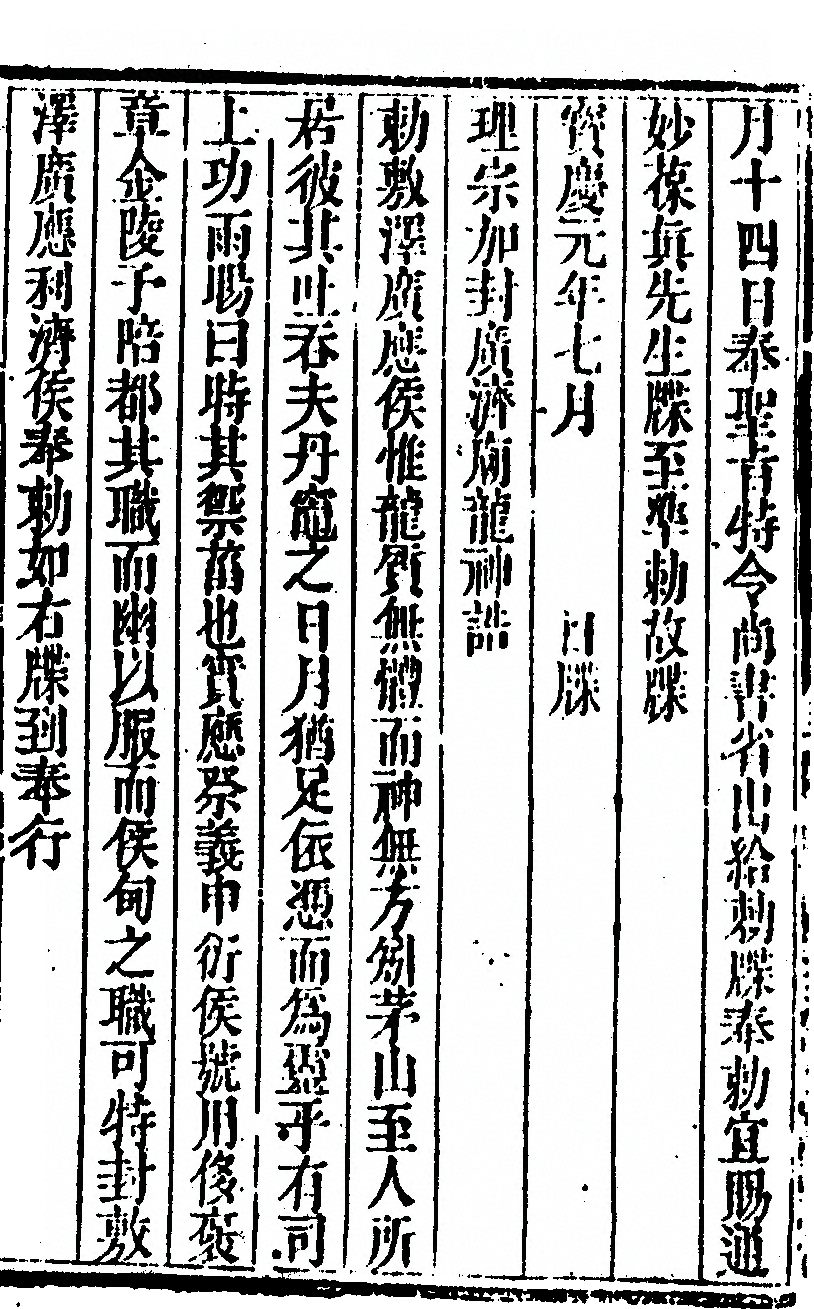 月十四日奉聖旨特令尚書省出給勅牒奉勅宜賜通
妙葆真先生牒至準勅故牒
寶慶元年七月　日牒
理宗加封廣濟廟龍神誥
勅敷澤廣應侯惟龍質無體而神無方矧茅山至人所
若彼其吐吞夫丹竈之日月猶足依憑而為靈乎有司
上功雨暘日時其禜菑也實應祭義申衍侯號用侈褒
章金陵予陪都其職而幽以服而侯甸之職可特封敷
澤廣應利濟侯奉勅如右牒到奉行